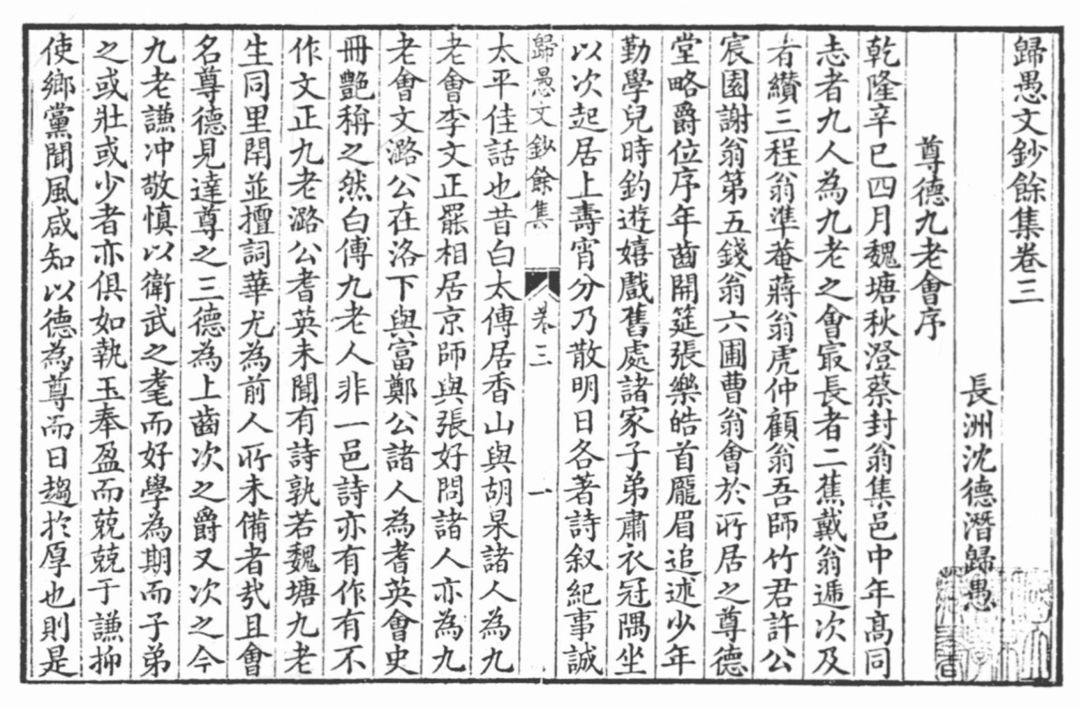 歸愚文鈔餘集卷三
長洲沈德潛歸愚
尊德九老會序
乾隆辛巳四月魏塘秋澄蔡封翁集邑中年高同
志者九人為九老之會㝡長者二蕉戴翁遞次及
者纘三程翁準菴蔣翁虎仲顧翁吾師竹君許公
宸園謝翁第五錢翁六圃曹翁會於所居之尊德
堂略爵位序年齒開筵張樂皓首龎眉追述少年
勤學兒時釣遊嬉戲舊處諸家子弟肅衣冠隅坐
以次起居上壽宵分乃散明日各著詩叙紀事誠
歸愚文鈔餘集 卷三 一
太平佳話也昔白太傅居香山與胡杲諸人為九
老會李文正罷相居京師與張好問諸人亦為九
老會文潞公在洛下與富鄭公諸人為耆英會史
冊艷稱之然白傅九老人非一邑詩亦有作有不
作文正九老潞公耆英未聞有詩孰若魏塘九老
生同里閈並擅詞華尤為前人所未備者㢤且會
名尊德見達尊之三德為上齒次之爵又次之今
九老謙冲敬慎以衛武之耄而好學為期而子弟
之或壯或少者亦俱如執玉奉盈而兢兢于謙抑
使鄉黨聞風咸知以德為尊而日趨於厚也則是